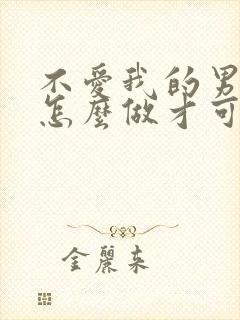 不愛我的男
怎麼做才可
金麗来